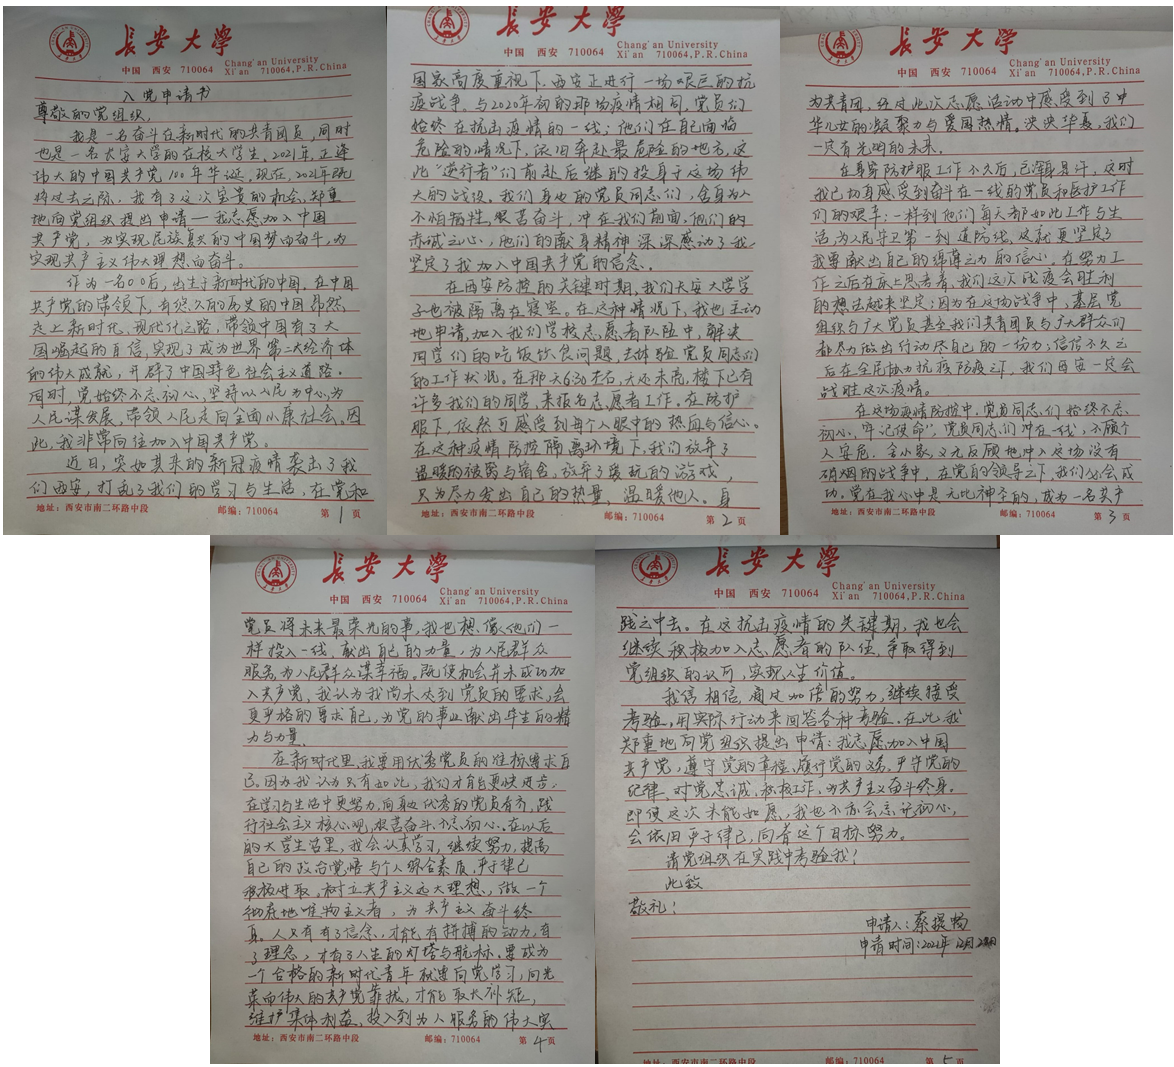 长安大学
中国 西安 710064 Chang'an University
Xi'an 710064,P.R.China
入党申请书
尊敬的党组织:
我是一名奋斗在新时代的共青团员,同时
也是一名长安大学的在校大学生。2021年,正逢
伟大的中国共产党100年华诞。现在,2021年既
将过去之际,我有了这次宝贵的机会,郑重
地向党组织提出申请——我志愿加入中国
共产党,为实现民族复兴的中国梦而奋斗,为
实现共产主义伟大理想而奋斗。
作为一名00后,出生于新时代的中国,在中国
共产党的带领下,有悠久的历史的中国昂然
走上新时代、现代化之路,带领中国有了大
国崛起的自信,实现了成为世界第二大经济体
的伟大成就,开辟了中国特色社会主义道路。
同时,党始终不忘初心,坚持以人民为中心,为
人民谋发展,带领人民走向全面小康社会。因
此,我非常向往加入中国共产党。
近日,突如其来的新冠疫情袭击了我
们西安,打乱了我们的学习与生活,在党和
地址:西安市南二环路中段 邮编:710064 第1页
长安大学
中国 西安 710064 Chang'an University
Xi'an 710064,P.R.China
国家高度重视下,西安正进行一场艰巨的抗
疫战争。与2020年初的那场疫情相同,党员们
始终在抗击疫情的一线;他们在自己面临
危险的情况下,依旧奔赴最危险的地方。这
此"逆行者"们前赴后继的投身于这场伟
大的战役。我们身边的党员同志们,舍身为人
不怕牺牲,艰苦奋斗,冲在我们前面,他们的
赤诚之心,他们的献身精神深深感动了我,
坚定了我加入中国共产党的信念。
在西安防控的关键时期,我们长安大学学
子也被隔离在寝室。在这种情况下,我也主动
地申请加入我们学校志愿者队伍中,解决
同学们的吃饭饮食问题,去体验党员同志们
的工作状况。在那天6:30左右,天还未亮,楼下已有
许多我们的同学,来报名志愿者工作。在防护
服下,依然可感受到每个人眼中的热血与信心。
在这种疫情防控隔离环境下,我们放弃了
温暖的被窝与宿舍,放弃了爱玩的游戏,
只为尽力发出自己的热量,温暖他人。身
地址:西安市南二环路中段 邮编:710064 第2页
长安大学
中国 西安 710064 Chang'an University
Xi'an 710064,P.R.China
为共青团,经过此次志愿活动中感受到了中
华儿女的凝聚力与爱国热情。泱泱华夏,我们
一定有光明的未来。
在身穿防护服工作不久后,已浑身是汗,这时
我已切身感受到奋斗在一线的党员和医护工作
们的艰辛;一想到他们每天都如此工作与生
活,为人民守卫第一到道防线,这就更坚定了
我要献出自己的绵薄之力的信心。在努力工
作之后在床上思考着,我们这次战疫会胜利
的想法越来坚定;因为在这场战争中,基层党
组织与广大党员甚至我们共青团员与广大群众们
都尽力做出行动尽自己的一份力;信信不久之
后在全民协力抗疫防疫之下,我们西安一定会
战胜这次疫情。
在这场疫情防控中,党员同志们始终不忘
初心、牢记使命",党员同志们冲在一线,不顾个
人安危、舍小家,义无反顾地冲入这场没有
硝烟的战争中,在党的领导之下,我们必会成
功。党在我心中是无比神圣的,成为一名共产
地址:西安市南二环路中段 邮编:710064 第3页
长安大学
中国 西安 710064 Chang'an University
Xi'an 710064,P.R.China
党员将未来最荣光的事,我也想像他们一
样投入一线,献出自己的力量,为人民群众
服务,为人民群众谋幸福。既使机会并未成功加
入共产党,我认为我尚未达到党员的要求,会
更严格的要求自己,为党的事业献出毕生的精
力与力量。
在新时代里,我要用优秀党员的准标要求自
己。因为我认为只有如此,我们才能更快进步。
在学习与生活中更努力,向身边优秀的党员看齐,践
行社会主义核心观,艰苦奋斗,不忘初心。在以后
的大学生活里,我会认真学习,继续努力,提高
自己的政治觉悟与个人综合素质,严于律己
积极进取,树立共产主义远大理想,做一个
彻底地唯物主义者,为共产主义奋斗终
身。人只有有了信念,才能有拼搏的动力,有
了理念,才有了人生的灯塔与航标。要成为
一个合格的新时代青年就要向党学习,向光
荣而伟大的共产党靠拢,才能取长补短,
维护集体利益,投入到为人服务的伟大实
地址:西安市南二环路中段 邮编:710064 第4页
长安大学
中国 西安 710064 Chang'an University
Xi'an 710064,P.R.China
践之中去。在这抗击疫情的关键期,我也会
继续积极加入志愿者的队伍,争取得到
党组织的认可,实现人生价值。
我信相信,通过加倍的努力,继续接受
考验,用实际行动来回答各种考验。在此,我
郑重地向党组织提出申请:我志愿加入中国
共产党,遵守党的章程,履行党的义务,严守党的
纪律,对党忠诚,积极工作,为共产主义奋斗终身。
即使这次未能如愿,我也不亦会忘记初心,
会依旧严于律己,向着这个目标努力。
请党组织在实践中考验我!
此致
敬礼!
申请人:蔡振畅
申请时间:2021年12月28日
地址:西安市南二环路中段 邮编:710064 第5页